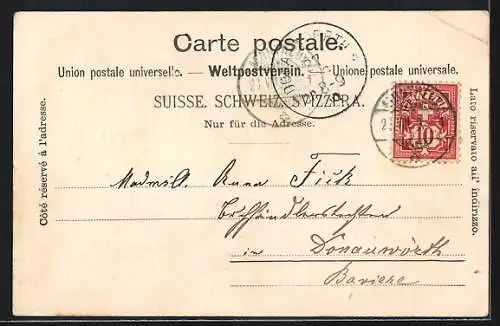 Carte postale.
Union postale universelle. — Weltpostverein. — Unione postale universale.
SUISSE. SCHWEIZ. SVIZZERA.
Nur für die Adresse.
Côté réservé à l'adresse.
Lato riservato all' indirizzo.
10
Anna Fick
in Donauwörth
Baviere